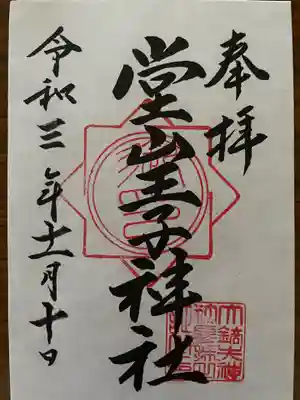 奉拝
堂山王子神社
令和三年十一月十日